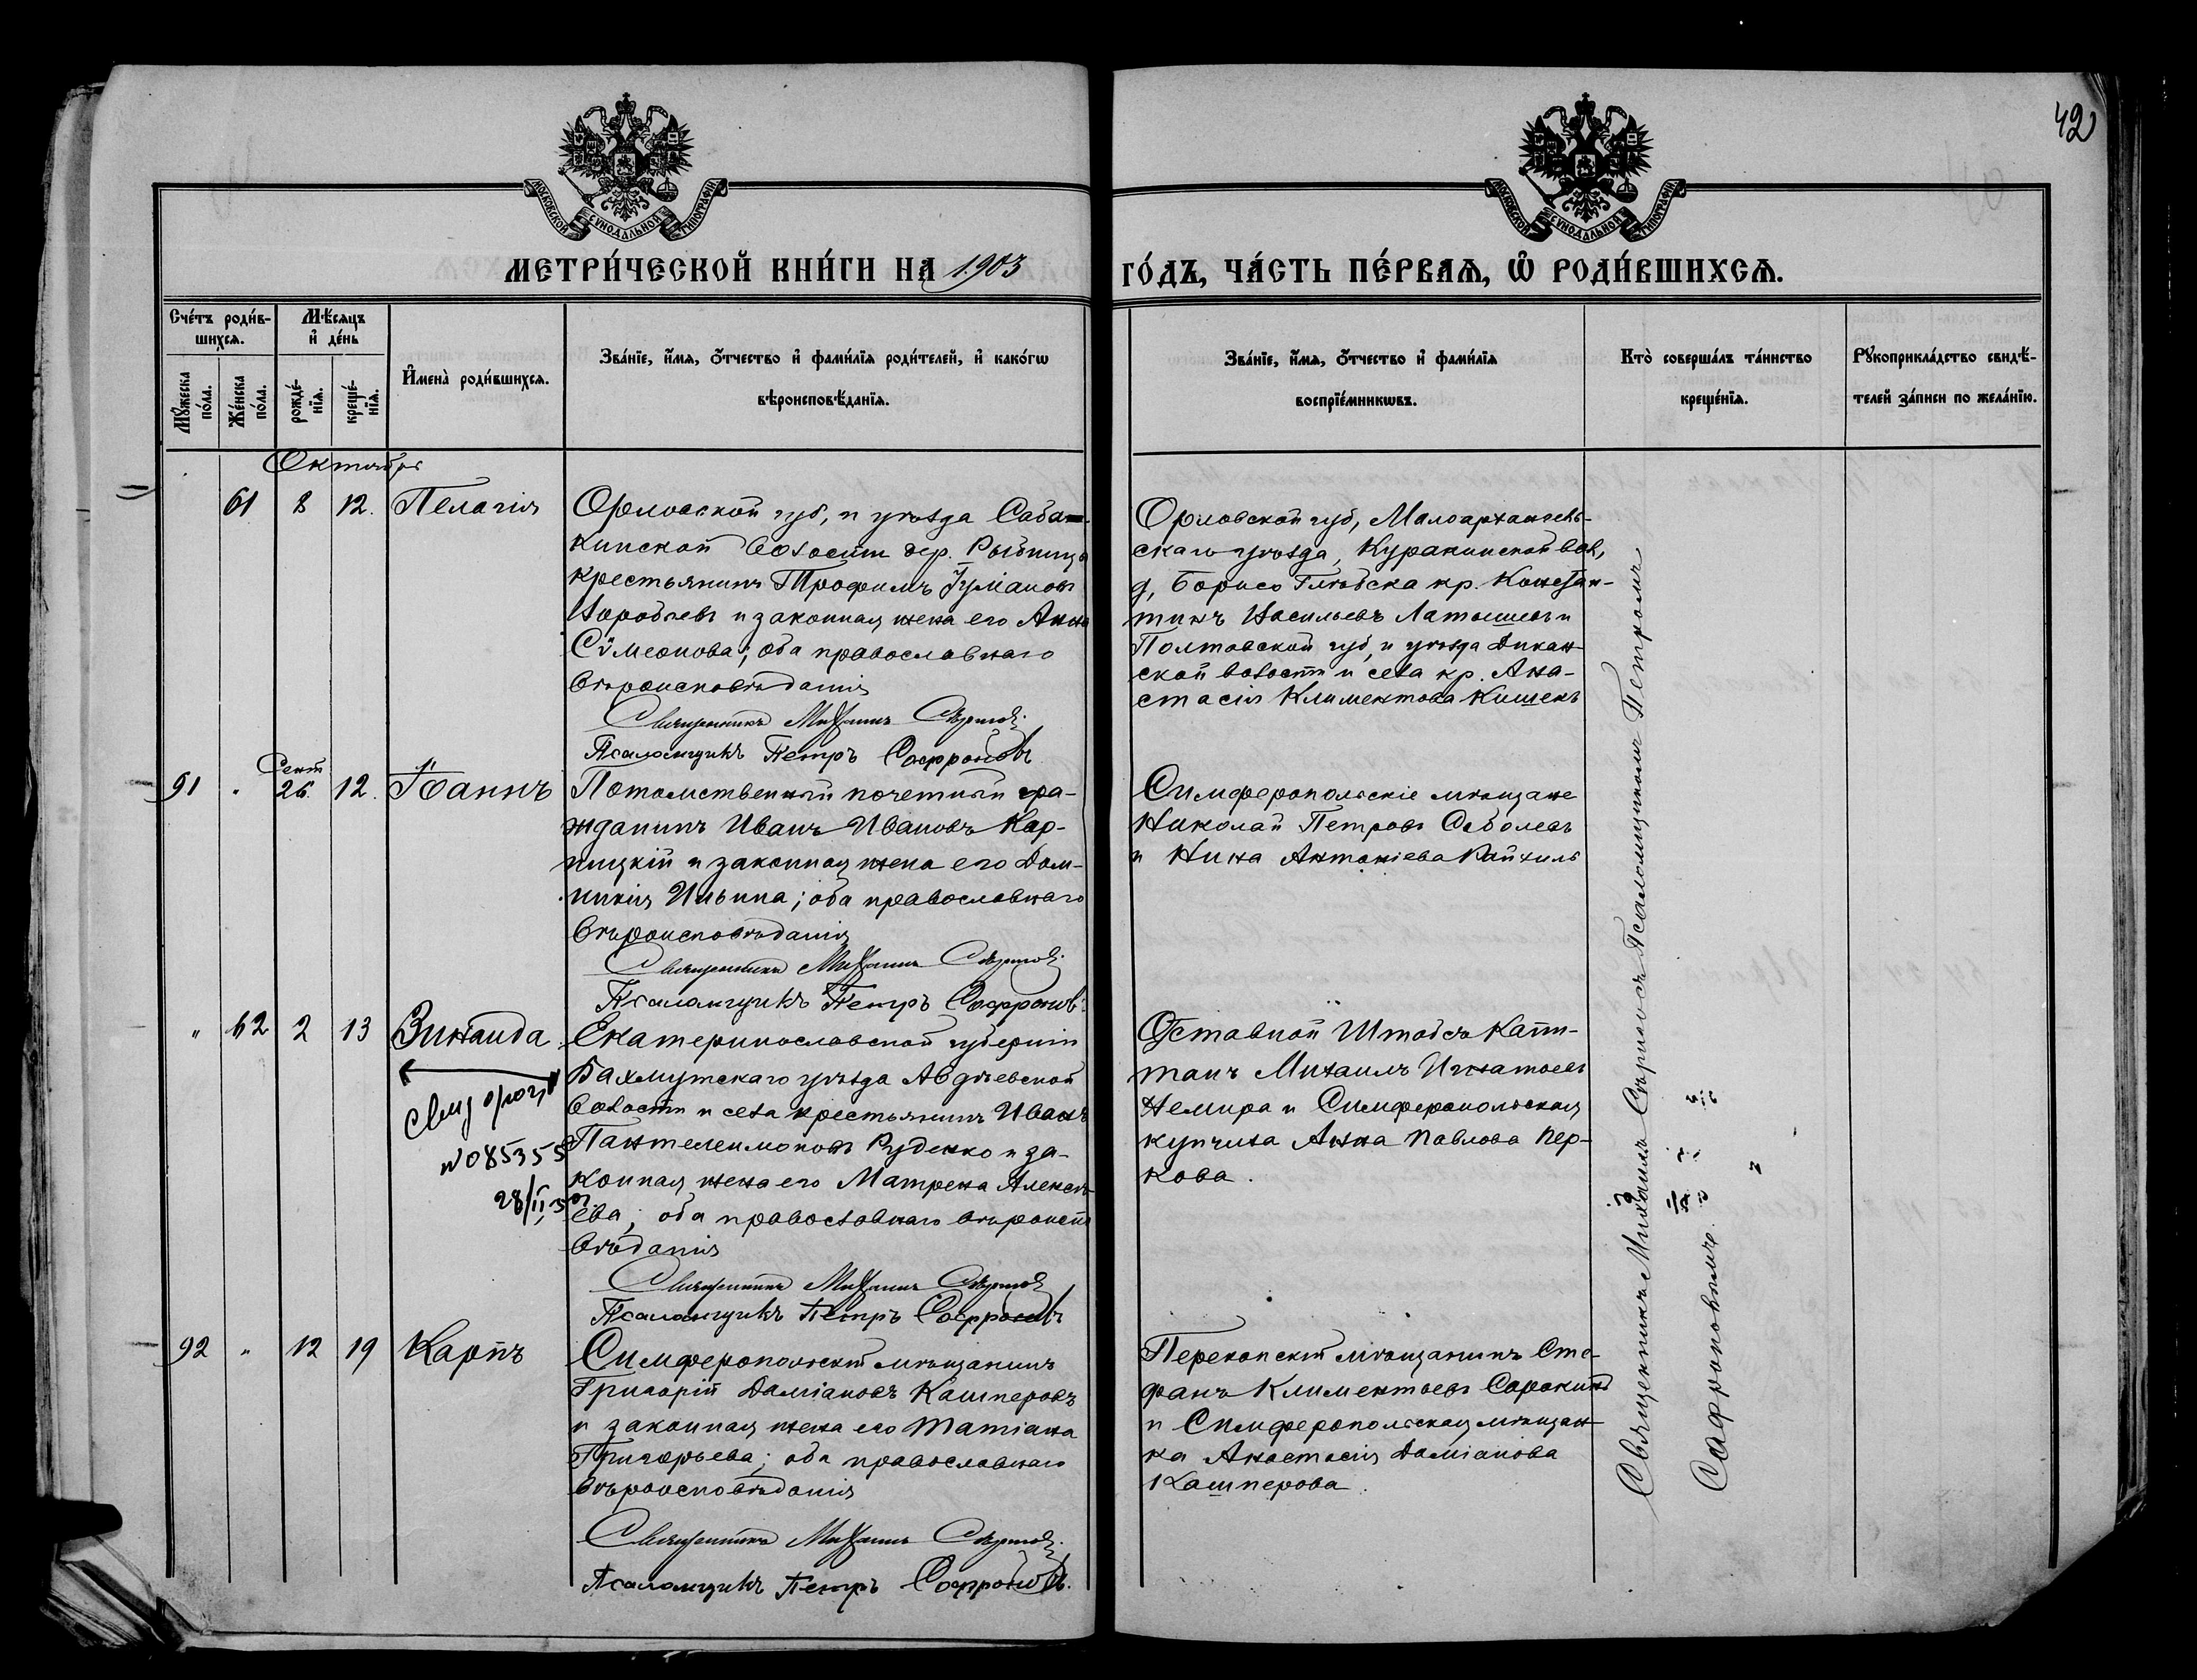 42
МОСКОВСКОЙ СѴНОДАЛЬНОЙ ТИПОГРАФІИ
МОСКОВСКОЙ СѴНОДАЛЬНОЙ ТИПОГРАФІИ
МЕТРИ́ЧЕСКОЙ КНИ́ГИ НА 1903
ГО́ДЪ, ЧА́СТЬ ПЕ́РВАѦ, Ѽ РОДИ́ВШИХСѦ.
Сче́тъ роди́в-
шихсѧ.
Мꙋ́жеска
по́ла.
Же́нска
по́ла.
Мѣ́сѧцъ
и҆ де́нь
рожде́-
нїѧ.
креще́-
нїѧ.
И҆мена̀ роди́вшихсѧ.
Зва́нїе, и҆́мѧ, ѻ҆́тчество и҆ фами́лїѧ роди́телей, и҆ како́гѡ
вѣроисповѣ́данїѧ.
Зва́нїе, и҆́мѧ, ѻ҆́тчество и҆ фами́лїѧ
воспрїе́мникѡвъ.
Кто̀ соверша́лъ та́инство
креще́нїѧ.
Рꙋкоприкла́дство свидѣ́-
телей за́писи по жела́нїю.
Октября
61 8 12. Пелагія
Орловской губ, и уѣзда Саба-
кинской волости дер. Рыбница
крестьянинъ Трофимъ Гуліановъ
Воробьевъ и законная жена его Анна
Сѵмеонова; оба православнаго
вѣроисповѣданія
Священникъ Михаилъ
Псаломщикъ Петръ Софроновъ
Орловской губ, Малоархангель-
скаго уѣзда, Куракинской вол,
д, Борисо Глѣбска кр. Констан-
тинъ Васильевъ Латышевъ и
Полтавской губ, и уѣзда Дикан-
ской волости и села кр. Ана-
стасія Климентова Кишекъ
Сент
91 " 26. 12. Іоаннъ
Потомственный почетный гра-
жданинъ Иванъ Ивановъ Кар-
пицкій и законная жена его Дом-
никія Ильина; оба православнаго
вѣроисповѣданія
Священникъ Михаилъ
Псаломщикъ Петръ Софроновъ
Симферопольскіе мѣщане
Николай Петровъ Соболевъ
и Нина Антоніева Райхиль
" 62 2 13 Зинаида
Екатеринославской губерніи
Бахмутскаго уѣзда Авдѣевской
волости и села крестьянинъ Иванъ
Пантелеимоновъ Руденко и за-
конная жена его Матрена Алексѣ-
ева; оба православнаго вѣроиспо
вѣданія
Священникъ Михаилъ
Псаломщикъ Петръ Софроновъ
N085355
28/II,
Отставной Штабсъ Капи-
танъ Михаилъ Игнатьевъ
Немира и Симферопольская
купчиха Анна Павлова Пер-
кова.
92 " 12 19 Карпъ
Симферопольскій мѣщанинъ
Григорій Даміановъ Кашперовъ
и законная жена его Татіана
Григорьева; оба православнаго
вѣроисповѣданія
Священникъ Михаилъ
Псаломщикъ Петръ Софроновъ.
Перекопскій мѣщанинъ Сте-
фанъ Климентьевъ Сорокинъ
и Симферопольская мѣщан-
ка Анастасія Даміанова
Кашперова.
Священникъ Михаилъ съ Псаломщикомъ Петромъ
Софроновымъ.